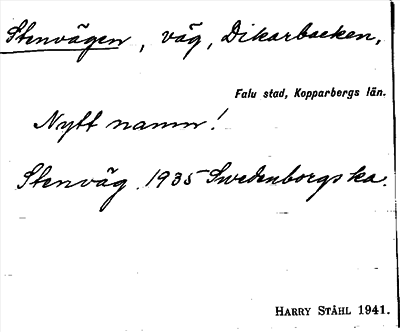 Stenvägen, väg, Dikarbacken,
Falu stad, Kopparbergs län.
Nytt namn!
Stenväg 1935 Swedenborgska.
HARRY STÅHL 1941.